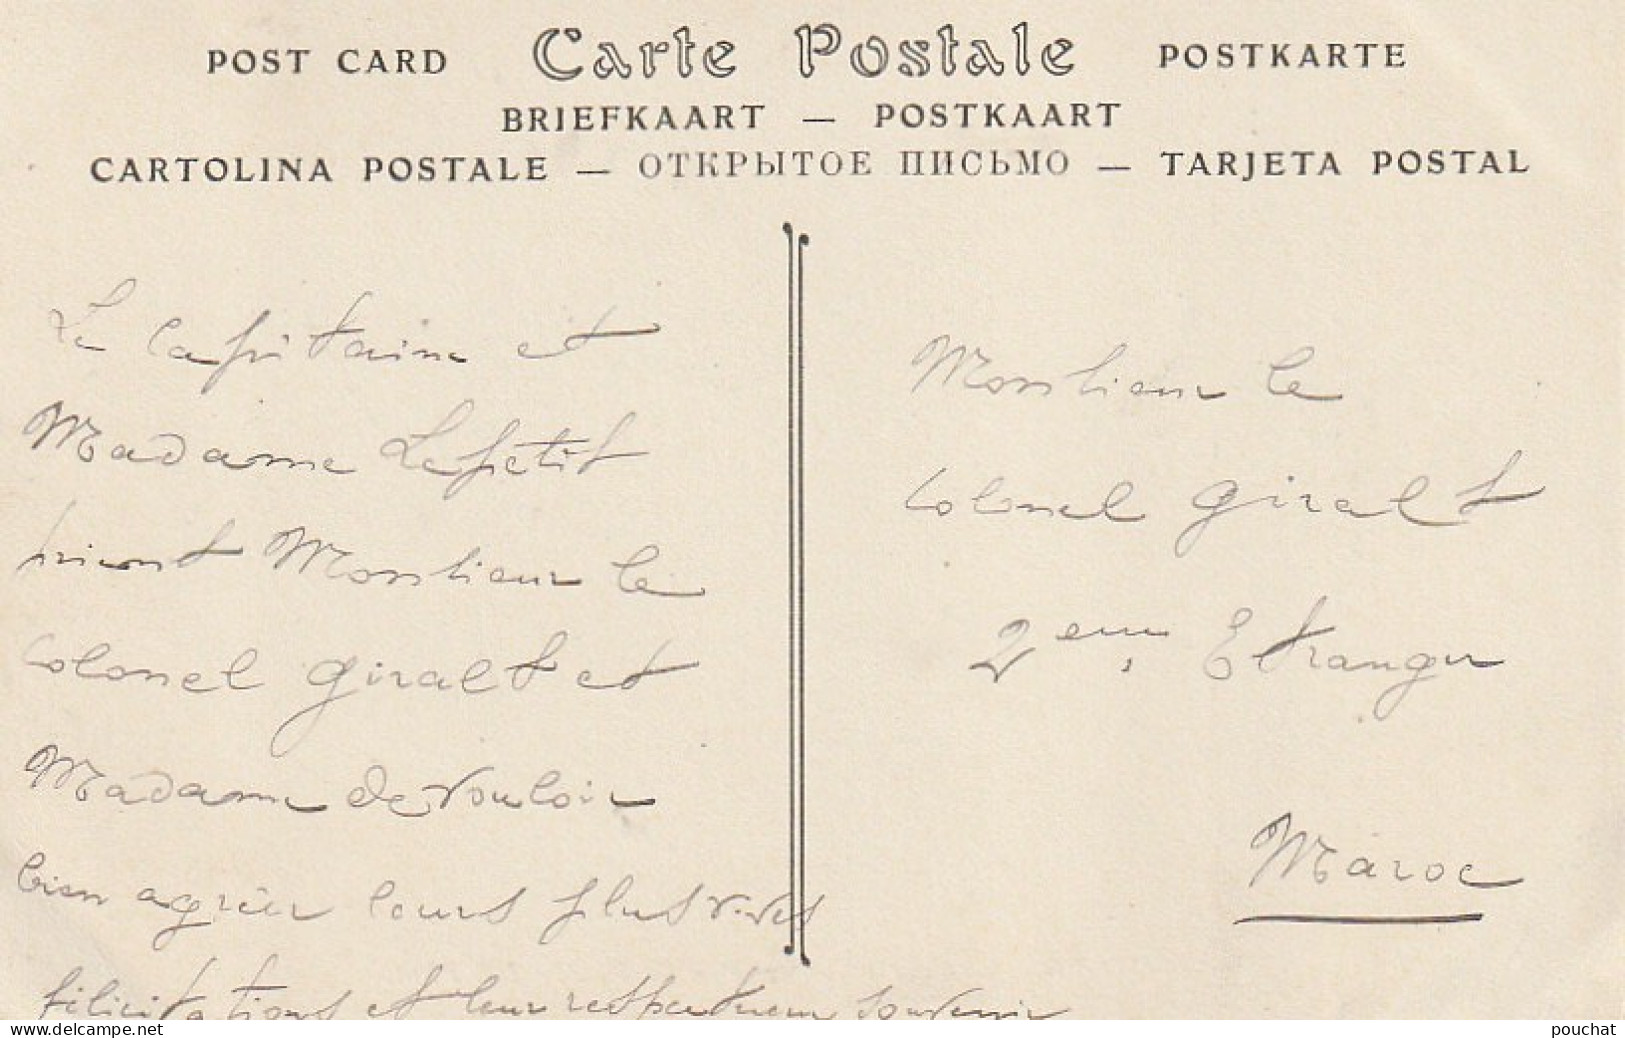 POST CARD Carte Postale POSTKARTE
BRIEFKAART — POSTKAART
CARTOLINA POSTALE — ОТКРЫТОЕ ПИСЬМО — TARJETA POSTAL
Le Capitaine et
Madame Lepetit
prient Monsieur le
Colonel Giralt et
Madame de vouloir
bien agréer leurs plus vives
félicitations et leur respectueux souvenir
Monsieur le
Colonel Giralt
2eme Etranger
Maroc
www.delcampe.net
pouchat